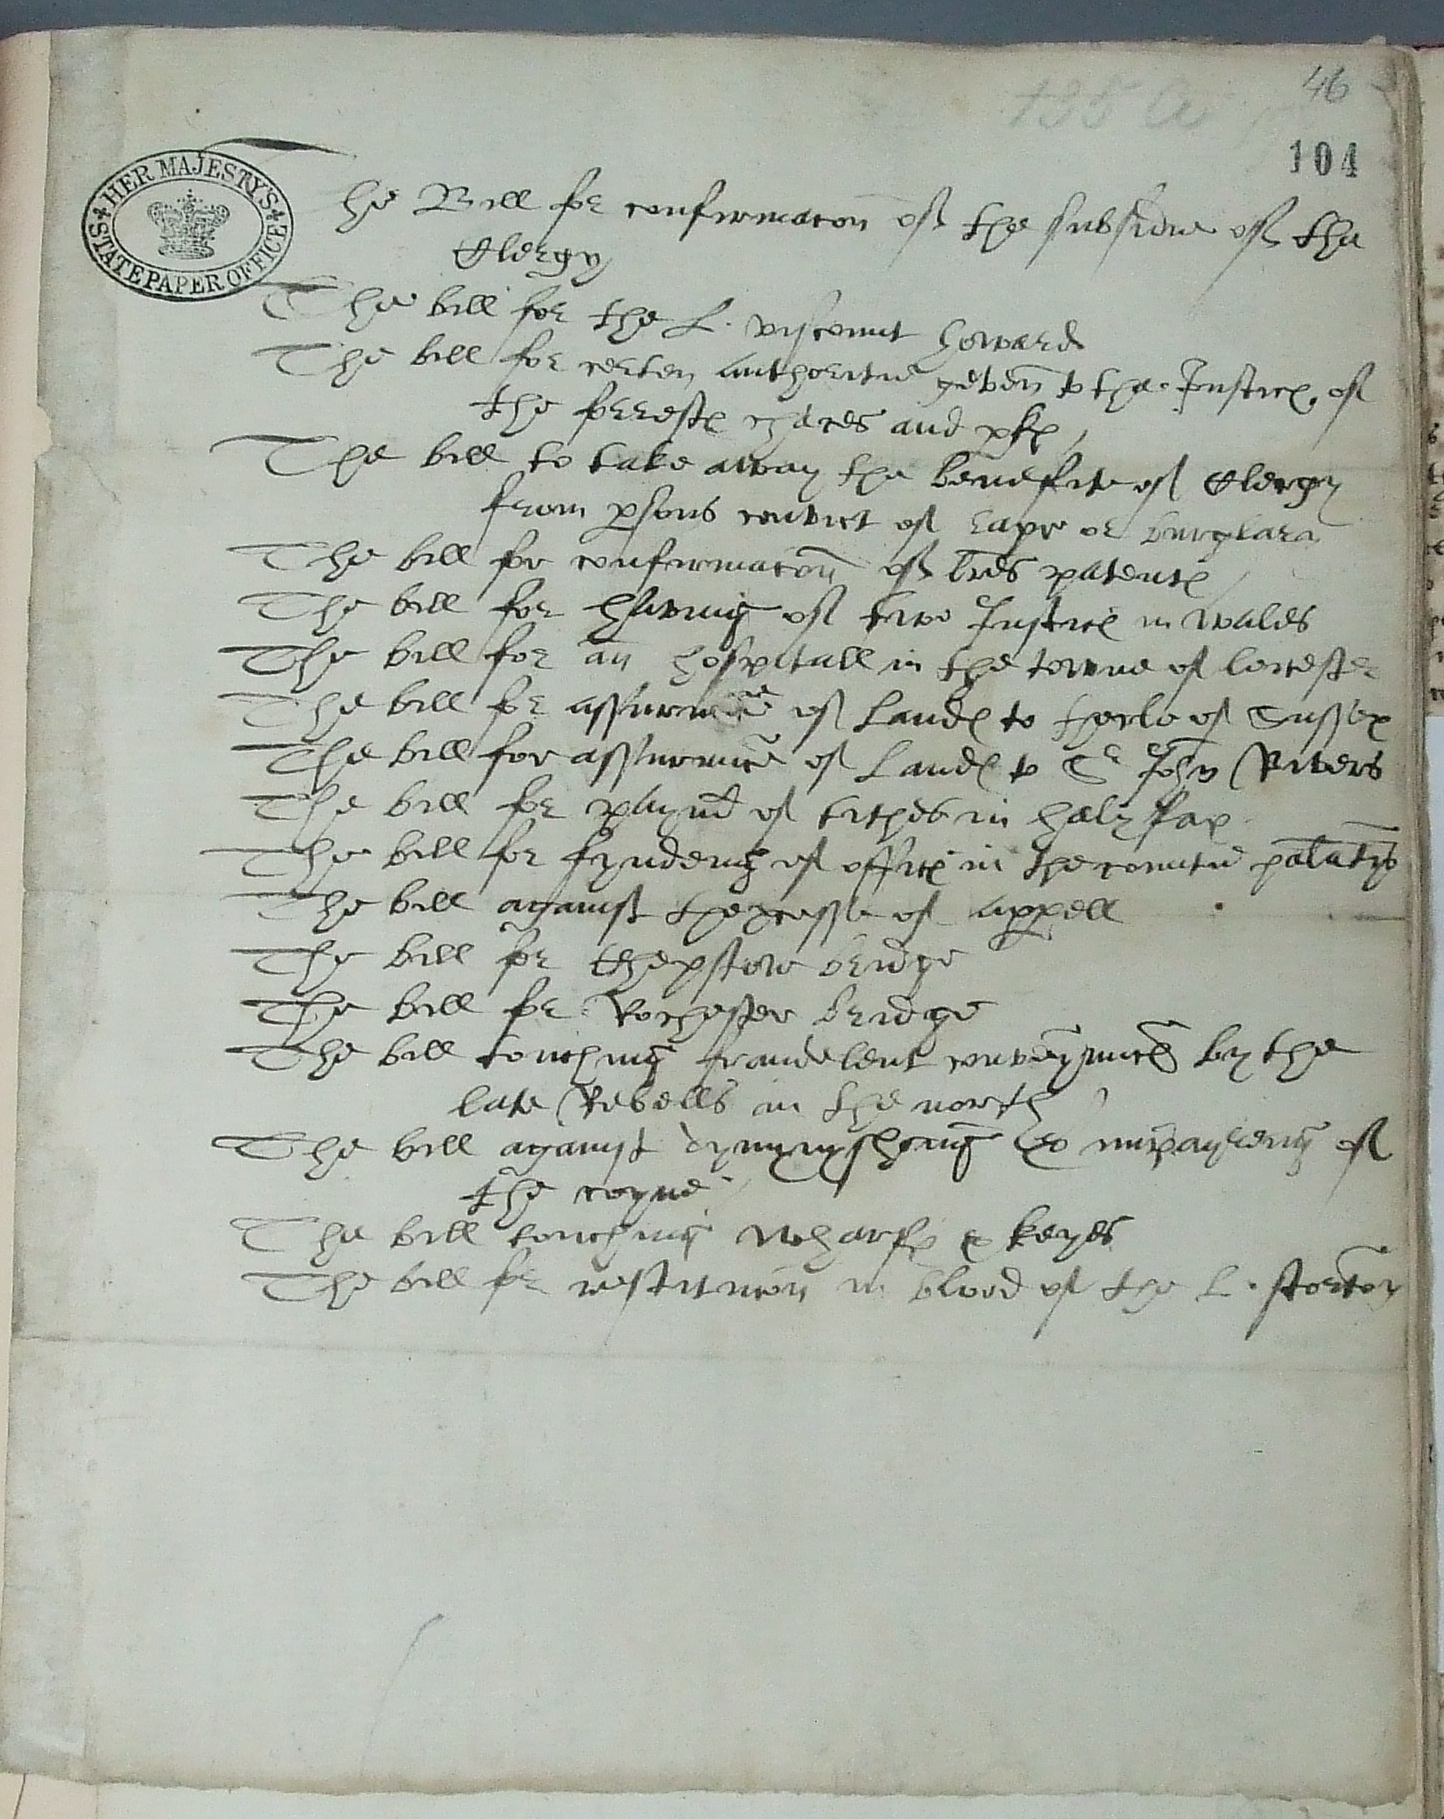 46
135 a
104
HER MAJESTY'S STATE PAPER OFFICE
The Bill for confirmacon of the subsidie of the
Clergy
The bill for the L. viscount howard
The bill for certen authoritie geven to the Justices of
the forrests chaces and pks
The bill to take away the benefite of Clergy
from psons convict of rape or burglary
The bill for confirmacon of lres patents
The bill for having of two Justices in wales
The bill for an hospitall in the towne of leicester
The bill for assurance of lands to therle of Sussex
The bill for assurance of lands to Sr John Rivers
The bill for paymt of tithes in halyfax
The bill for fyndeng of offices in the countie palatyn
The bill against thexcesse of appell
The bill for Chepstow bridge
The bill for Rochester bridge
The bill touching fraudelent conveyances by the
late Rebells in the north
The bill against dymynysheng & impayreng of
the coyne
The bill touching wharfs & keyes
The bill for restitucon in blood of the L. storton